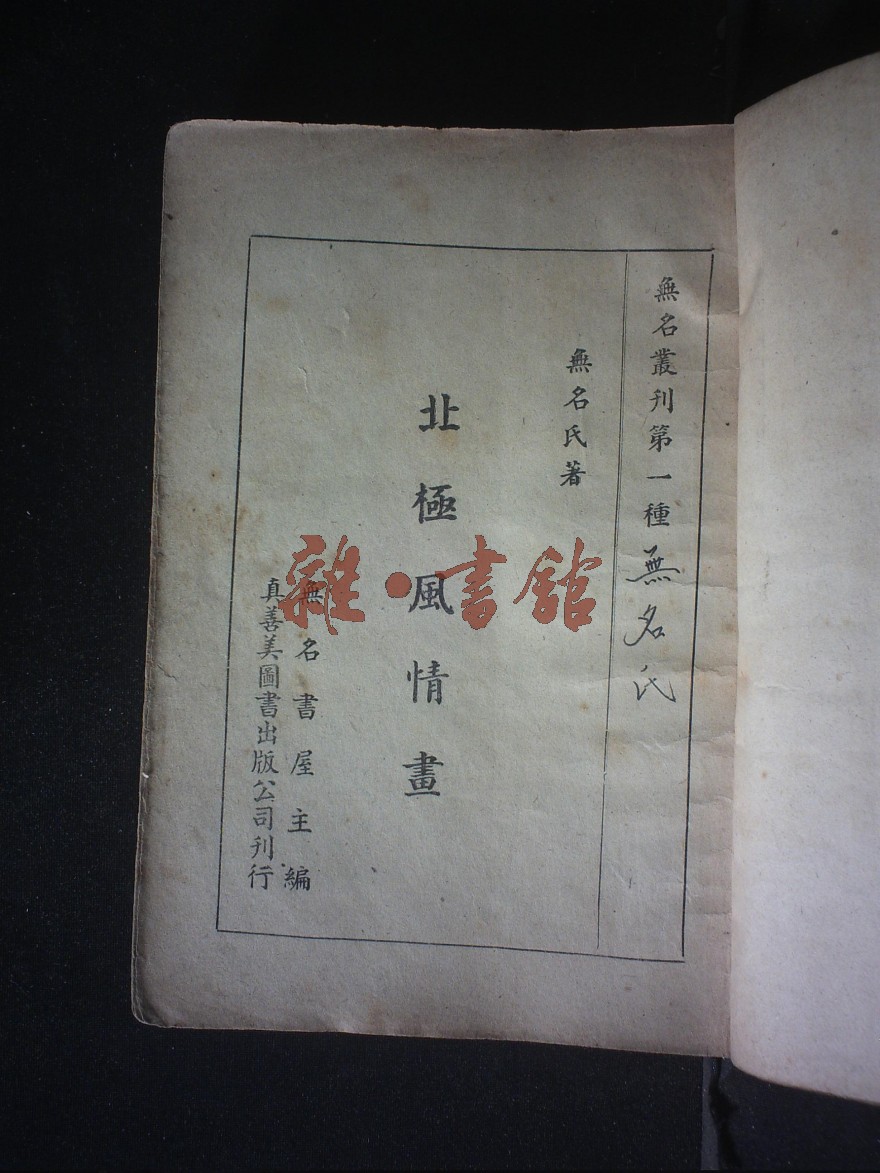 無名叢刊第一種
無名氏
無名氏著
北極風情畫
無名書屋主編
真善美圖書出版公司刊行
雜·書館